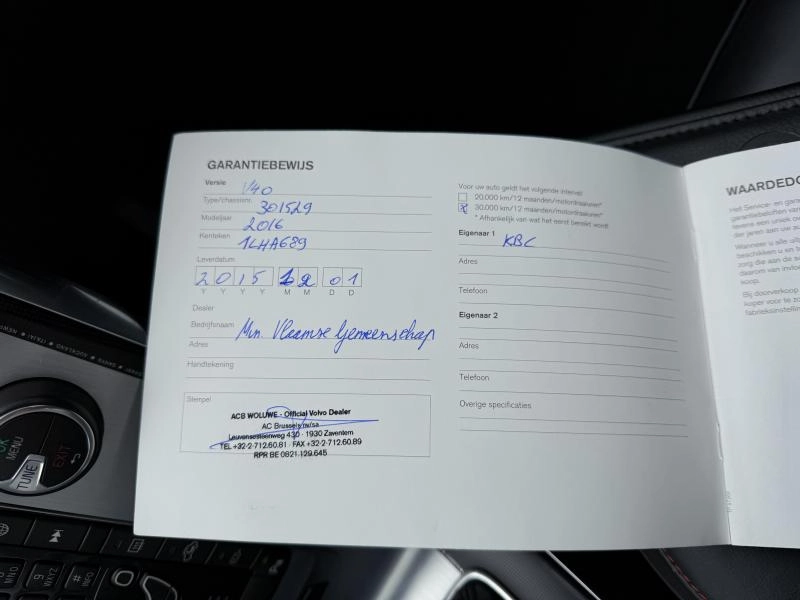 GARANTIEBEWIJS
Versie V40
Type/chassisnr. 301529
Modeljaar 2016
Kenteken 1LHA689
Leverdatum
2 0 1 5 12 01
Y Y Y Y M M D D
Dealer
Bedrijfsnaam Min. Vlaamse Gemeenschap
Adres
Handtekening
Stempel
ACB WOLUWE - Official Volvo Dealer
AC Brussels nv/sa
Leuvensesteenweg 430 - 1930 Zaventem
TEL +32-2-712.60.81 FAX +32-2-712.60.89
RPR BE 0821.129.645
Voor uw auto geldt het volgende interval:
20.000 km/12 maanden/motordraaiuren*
x 30.000 km/12 maanden/motordraaiuren*
* Afhankelijk van wat het eerst bereikt wordt
Eigenaar 1 KBC
Adres
Telefoon
Eigenaar 2
Adres
Telefoon
Overige specificaties
WAARDEDO
Het Service- en gara
garantiebeloften van
tevens een uniek ove
der jaren aan uw au
Wanneer u alle uit
beschikken u en b
zorg die aan de a
daarom van invloe
koop.
Bij doorverkoop
koper voor te zo
fabrieksinstelling
OK
MENU
EXIT
TUNE
MNO
9
WXYZ
#
INFO
0